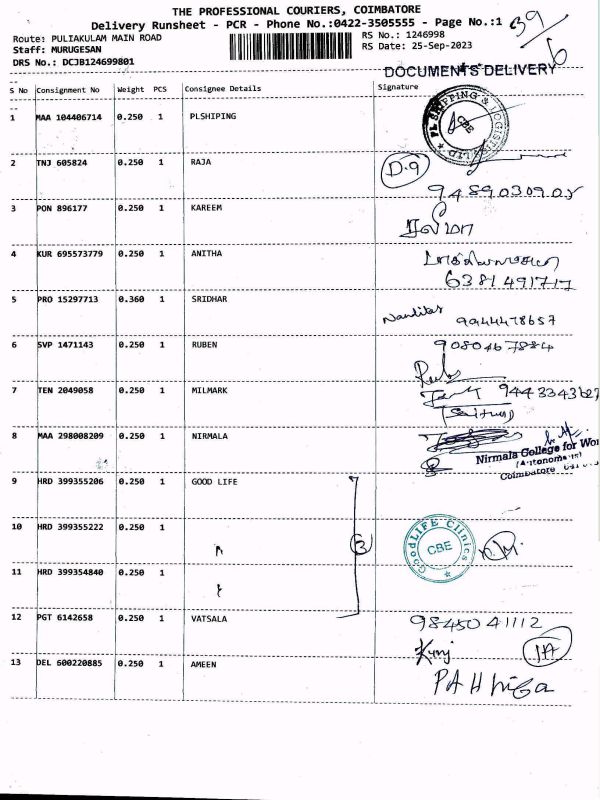 THE PROFESSIONAL COURIERS, COIMBATORE
Delivery Runsheet - PCR - Phone No.:0422-3505555 - Page No.:1
39/6
Route: PULIAKULAM MAIN ROAD
RS No.: 1246998
Staff: MURUGESAN
RS Date: 25-Sep-2023
DRS No.: DCJB124699801
DOCUMENTS DELIVERY
S No Consignment No Weight PCS Consignee Details Signature
1 MAA 104406714 0.250 1 PLSHIPING
PL SHIPPING & LOGISTIC LTD
CBE
2 TNJ 605824 0.250 1 RAJA
D.9
9489030905
3 PON 896177 0.250 1 KAREEM
4 KUR 695573779 0.250 1 ANITHA
6381491717
5 PRO 15297713 0.360 1 SRIDHAR
9944478657
6 SVP 1471143 0.250 1 RUBEN
9080467884
7 TEN 2049058 0.250 1 MILMARK
9443343627
8 MAA 298008209 0.250 1 NIRMALA
Nirmala College for Wo
(Autonomous)
Coimbatore
9 HRD 399355206 0.250 1 GOOD LIFE
10 HRD 399355222 0.250 1
3
GoodLIFE Clinics
CBE
11 HRD 399354840 0.250 1
12 PGT 6142658 0.250 1 VATSALA
9845041112
13 DEL 600220885 0.250 1 AMEEN